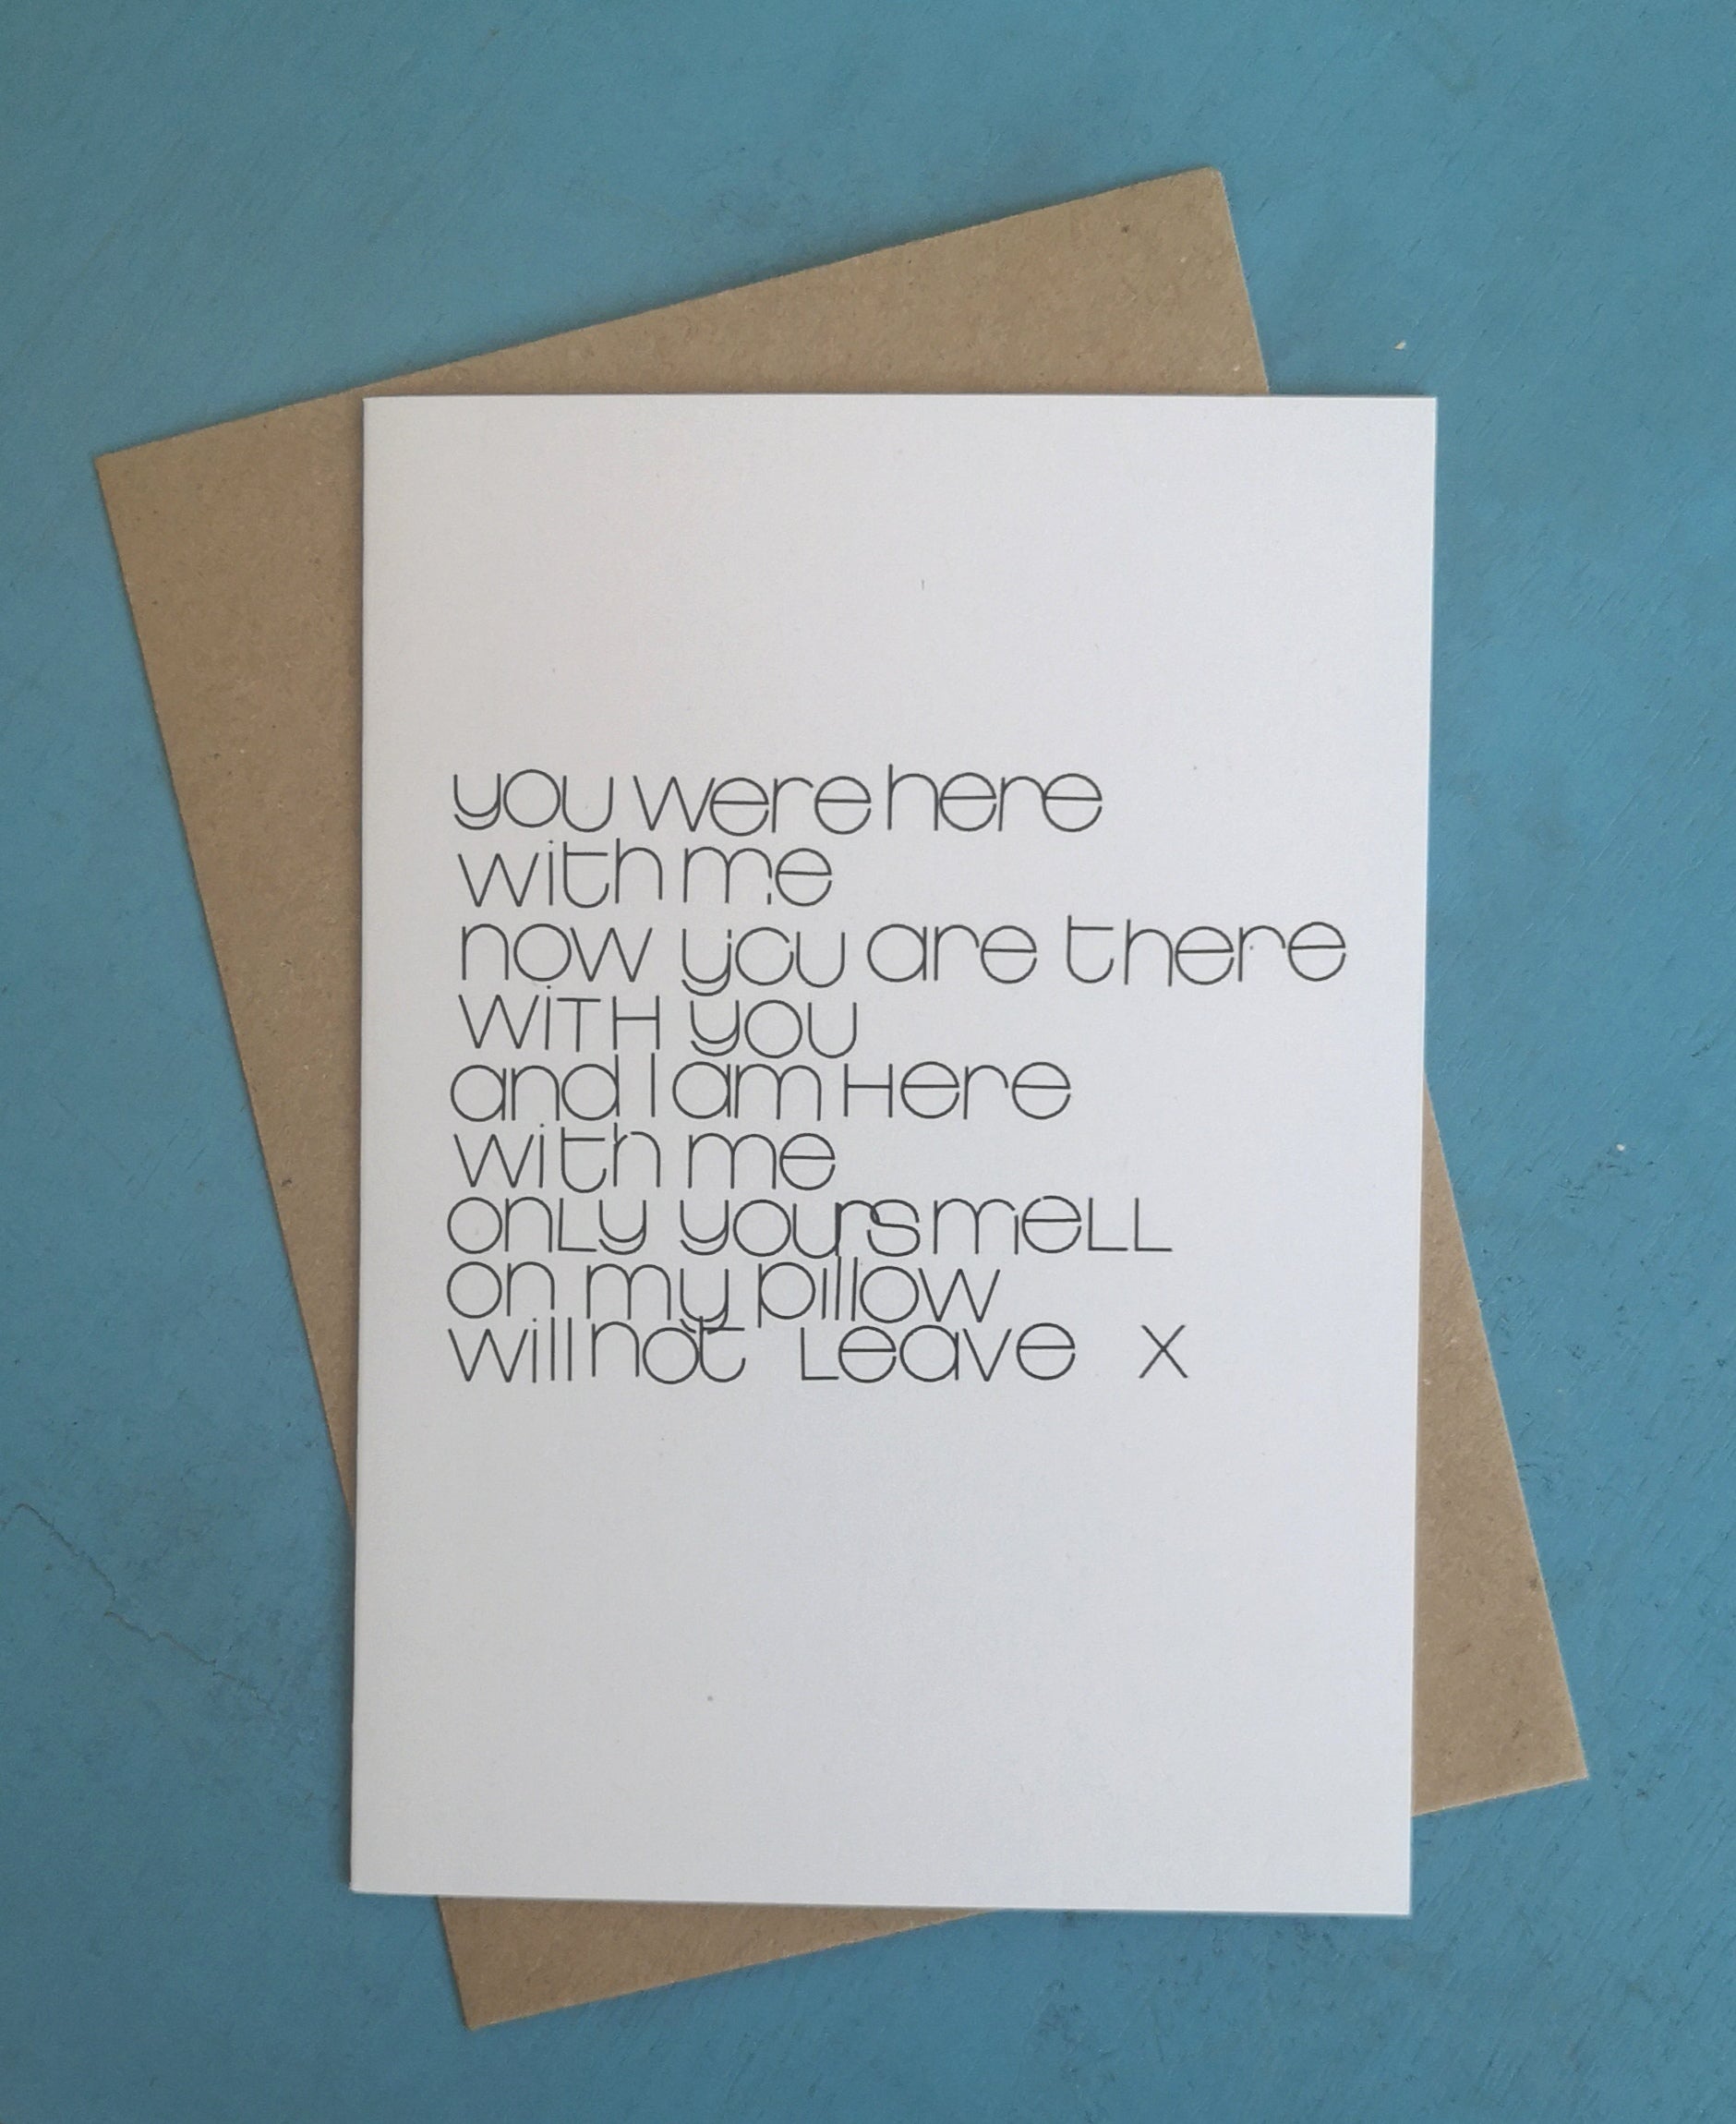 you were here
with me
now you are there
WiTH you
and I am Here
with me
onLy your smeLL
on my pillow
will not Leave X